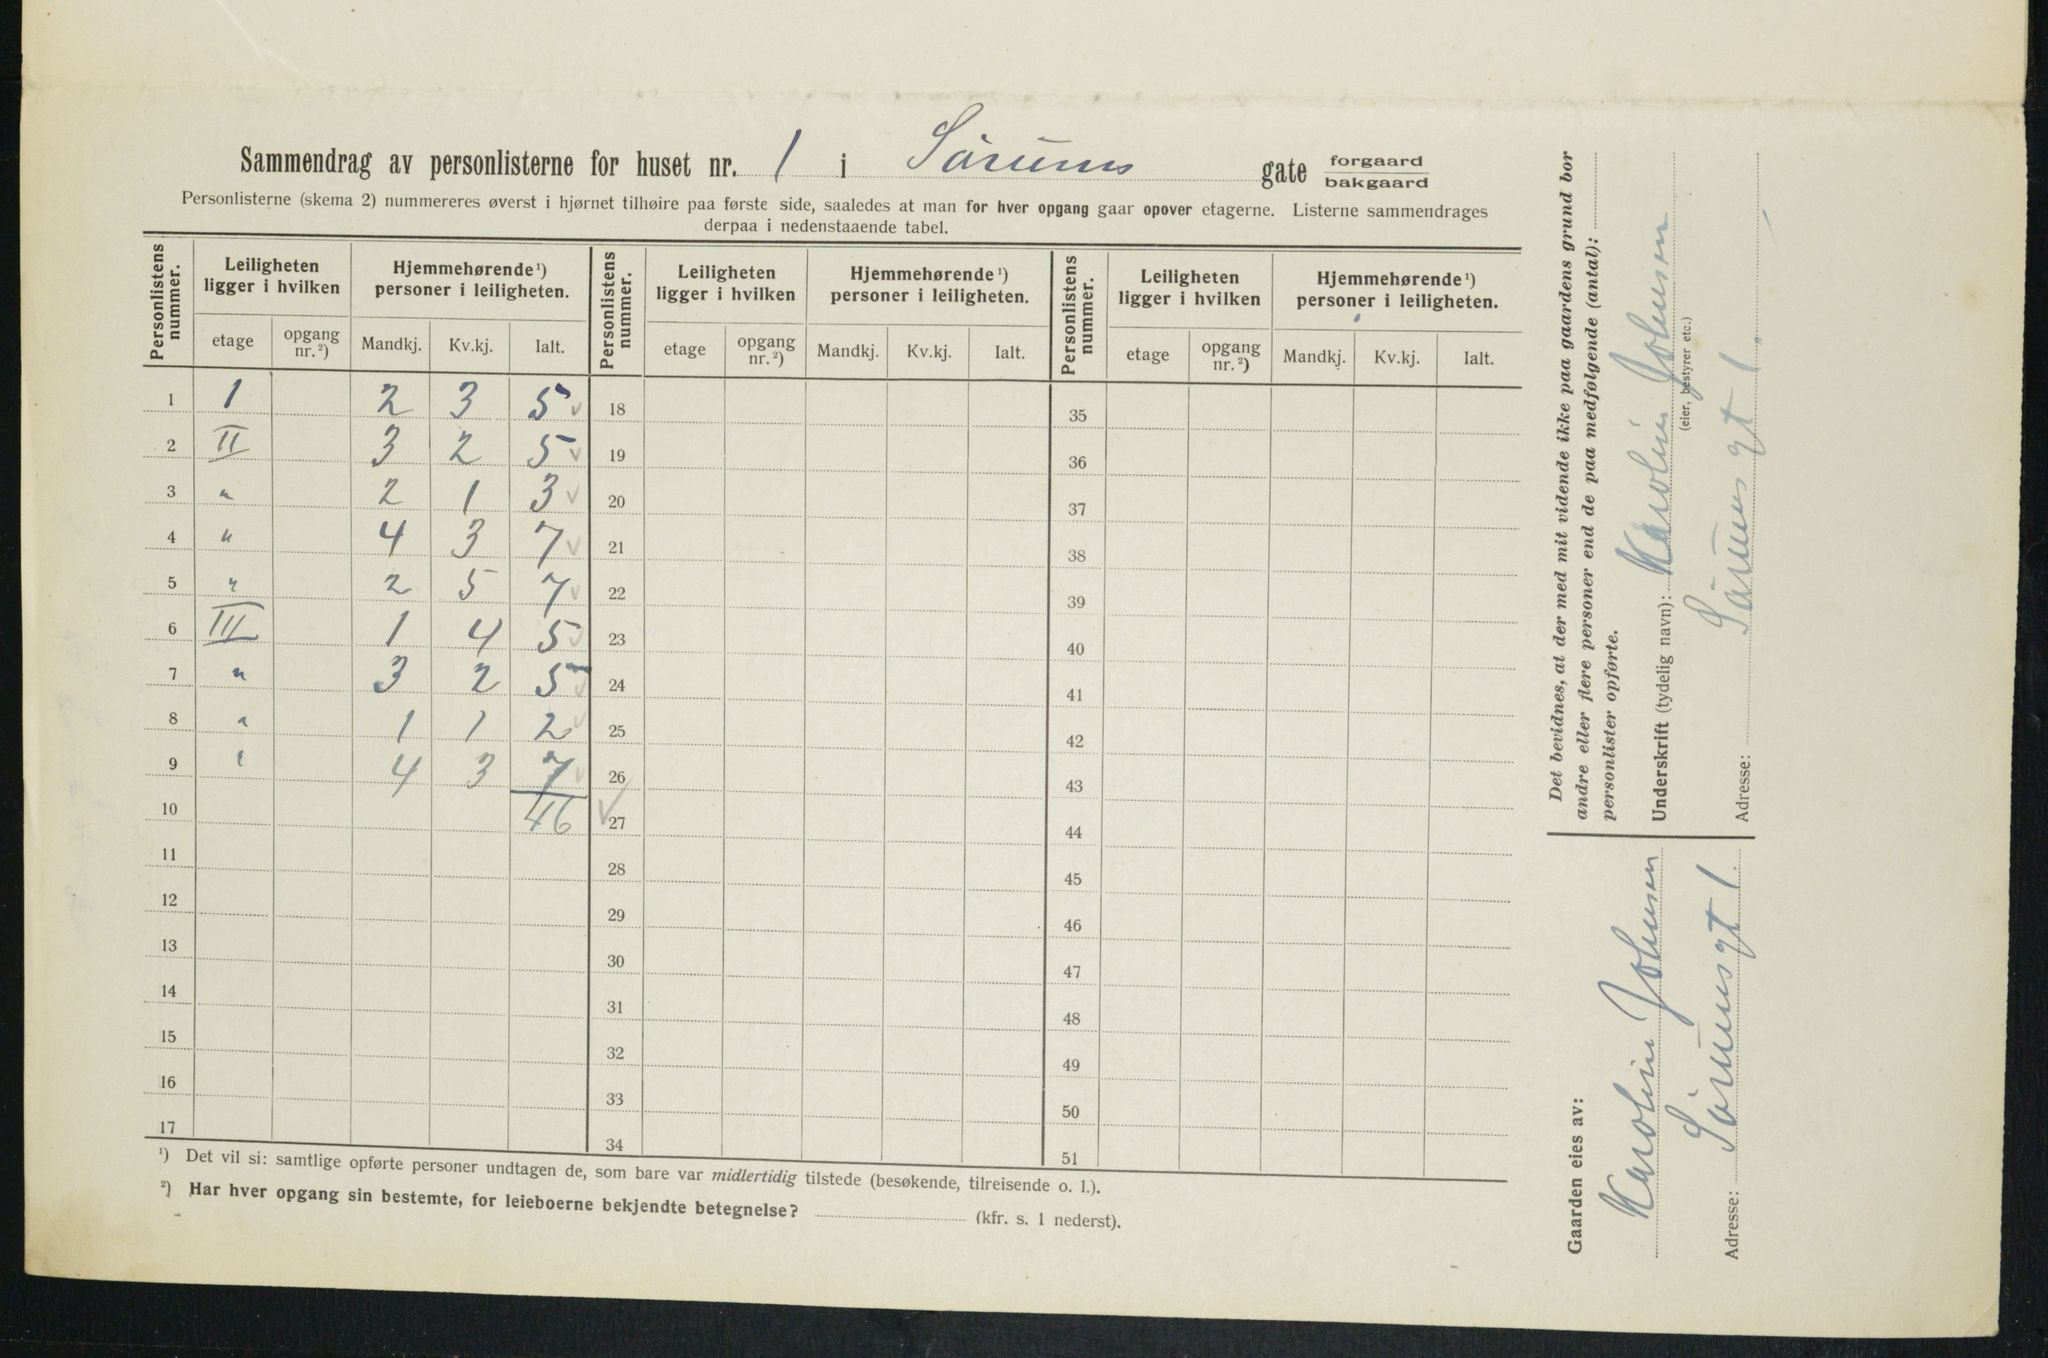 Sammendrag av personlisterne for huset nr. 1 i Sørums gate forgaard
bakgaard
Personlisterne (skema 2) nummereres øverst i hjørnet tilhøire paa første side, saaledes at man for hver opgang gaar opover etagerne. Listerne sammendrages
derpaa i nedenstaaende tabel.
Personlistens nummer. Leiligheten ligger i hvilken Hjemmehørende¹) personer i leiligheten. Personlistens nummer. Leiligheten ligger i hvilken Hjemmehørende¹) personer i leiligheten. Personlistens nummer. Leiligheten ligger i hvilken Hjemmehørende¹) personer i leiligheten.
etage opgang nr.²) Mandkj. Kv.kj. Ialt. etage opgang nr.²) Mandkj. Kv.kj. Ialt. etage opgang nr.²) Mandkj. Kv.kj. Ialt.
1 1 2 3 5 ✓ 18 35
2 II 3 2 5 ✓ 19 36
3 " 2 1 3 ✓ 20 37
4 " 4 3 7 ✓ 21 38
5 " 2 5 7 ✓ 22 39
6 III 1 4 5 ✓ 23 40
7 " 3 2 5 ✓ 24 41
8 " 1 1 2 ✓ 25 42
9 " 4 3 7 ✓ 26 43
10 46 ✓ 27 44
11 28 45
12 29 46
13 30 47
14 31 48
15 32 49
16 33 50
17 34 51
¹) Det vil si: samtlige opførte personer undtagen de, som bare var midlertidig tilstede (besøkende, tilreisende o. l.).
²) Har hver opgang sin bestemte, for leieboerne bekjendte betegnelse? (kfr. s. 1 nederst).
Det bevidnes, at der med mit vidende ikke paa gaardens grund bor
andre eller flere personer end de paa medfølgende (antal):
personlister opførte.
Underskrift (tydelig navn): Karolin Johnsen
(eier, bestyrer etc.)
Adresse: Sørums gt 1.
Gaarden eies av:
Karolin Johnsen
Adresse: Sørumsgt 1.